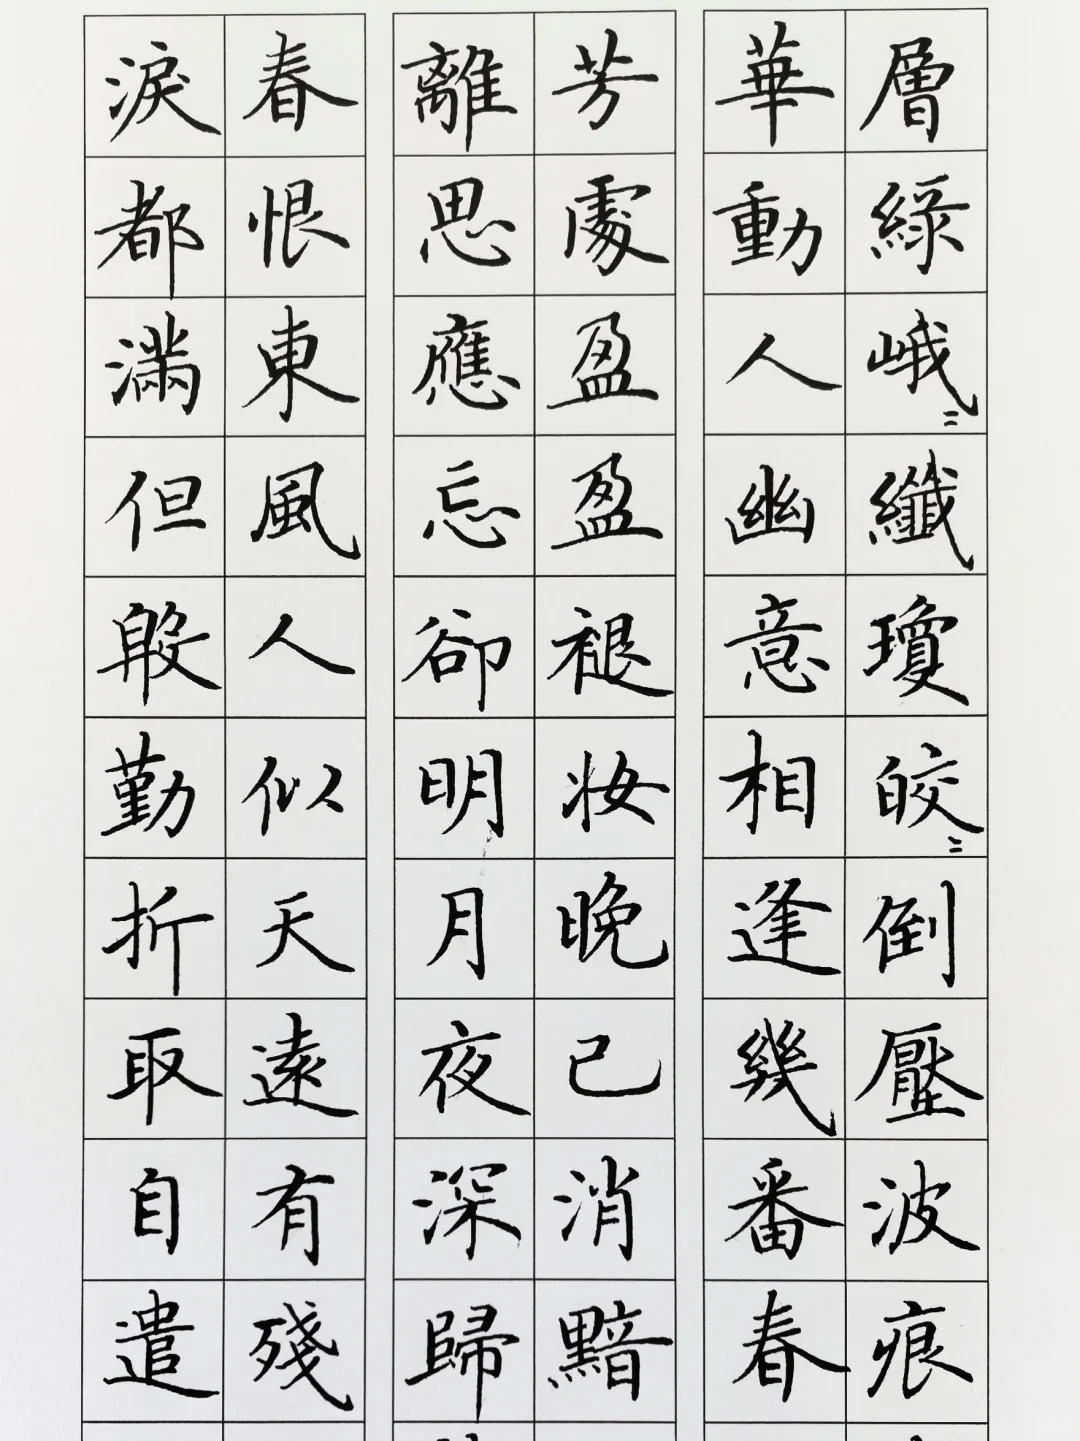 層綠峨〻纖瓊皎〻倒壓波痕
華動人幽意相逢幾番春
芳處盈盈褪妝晚已消黯
離思應忘卻明月夜深歸
春恨東風人似天遠有殘
淚都滿但殷勤折取自遣